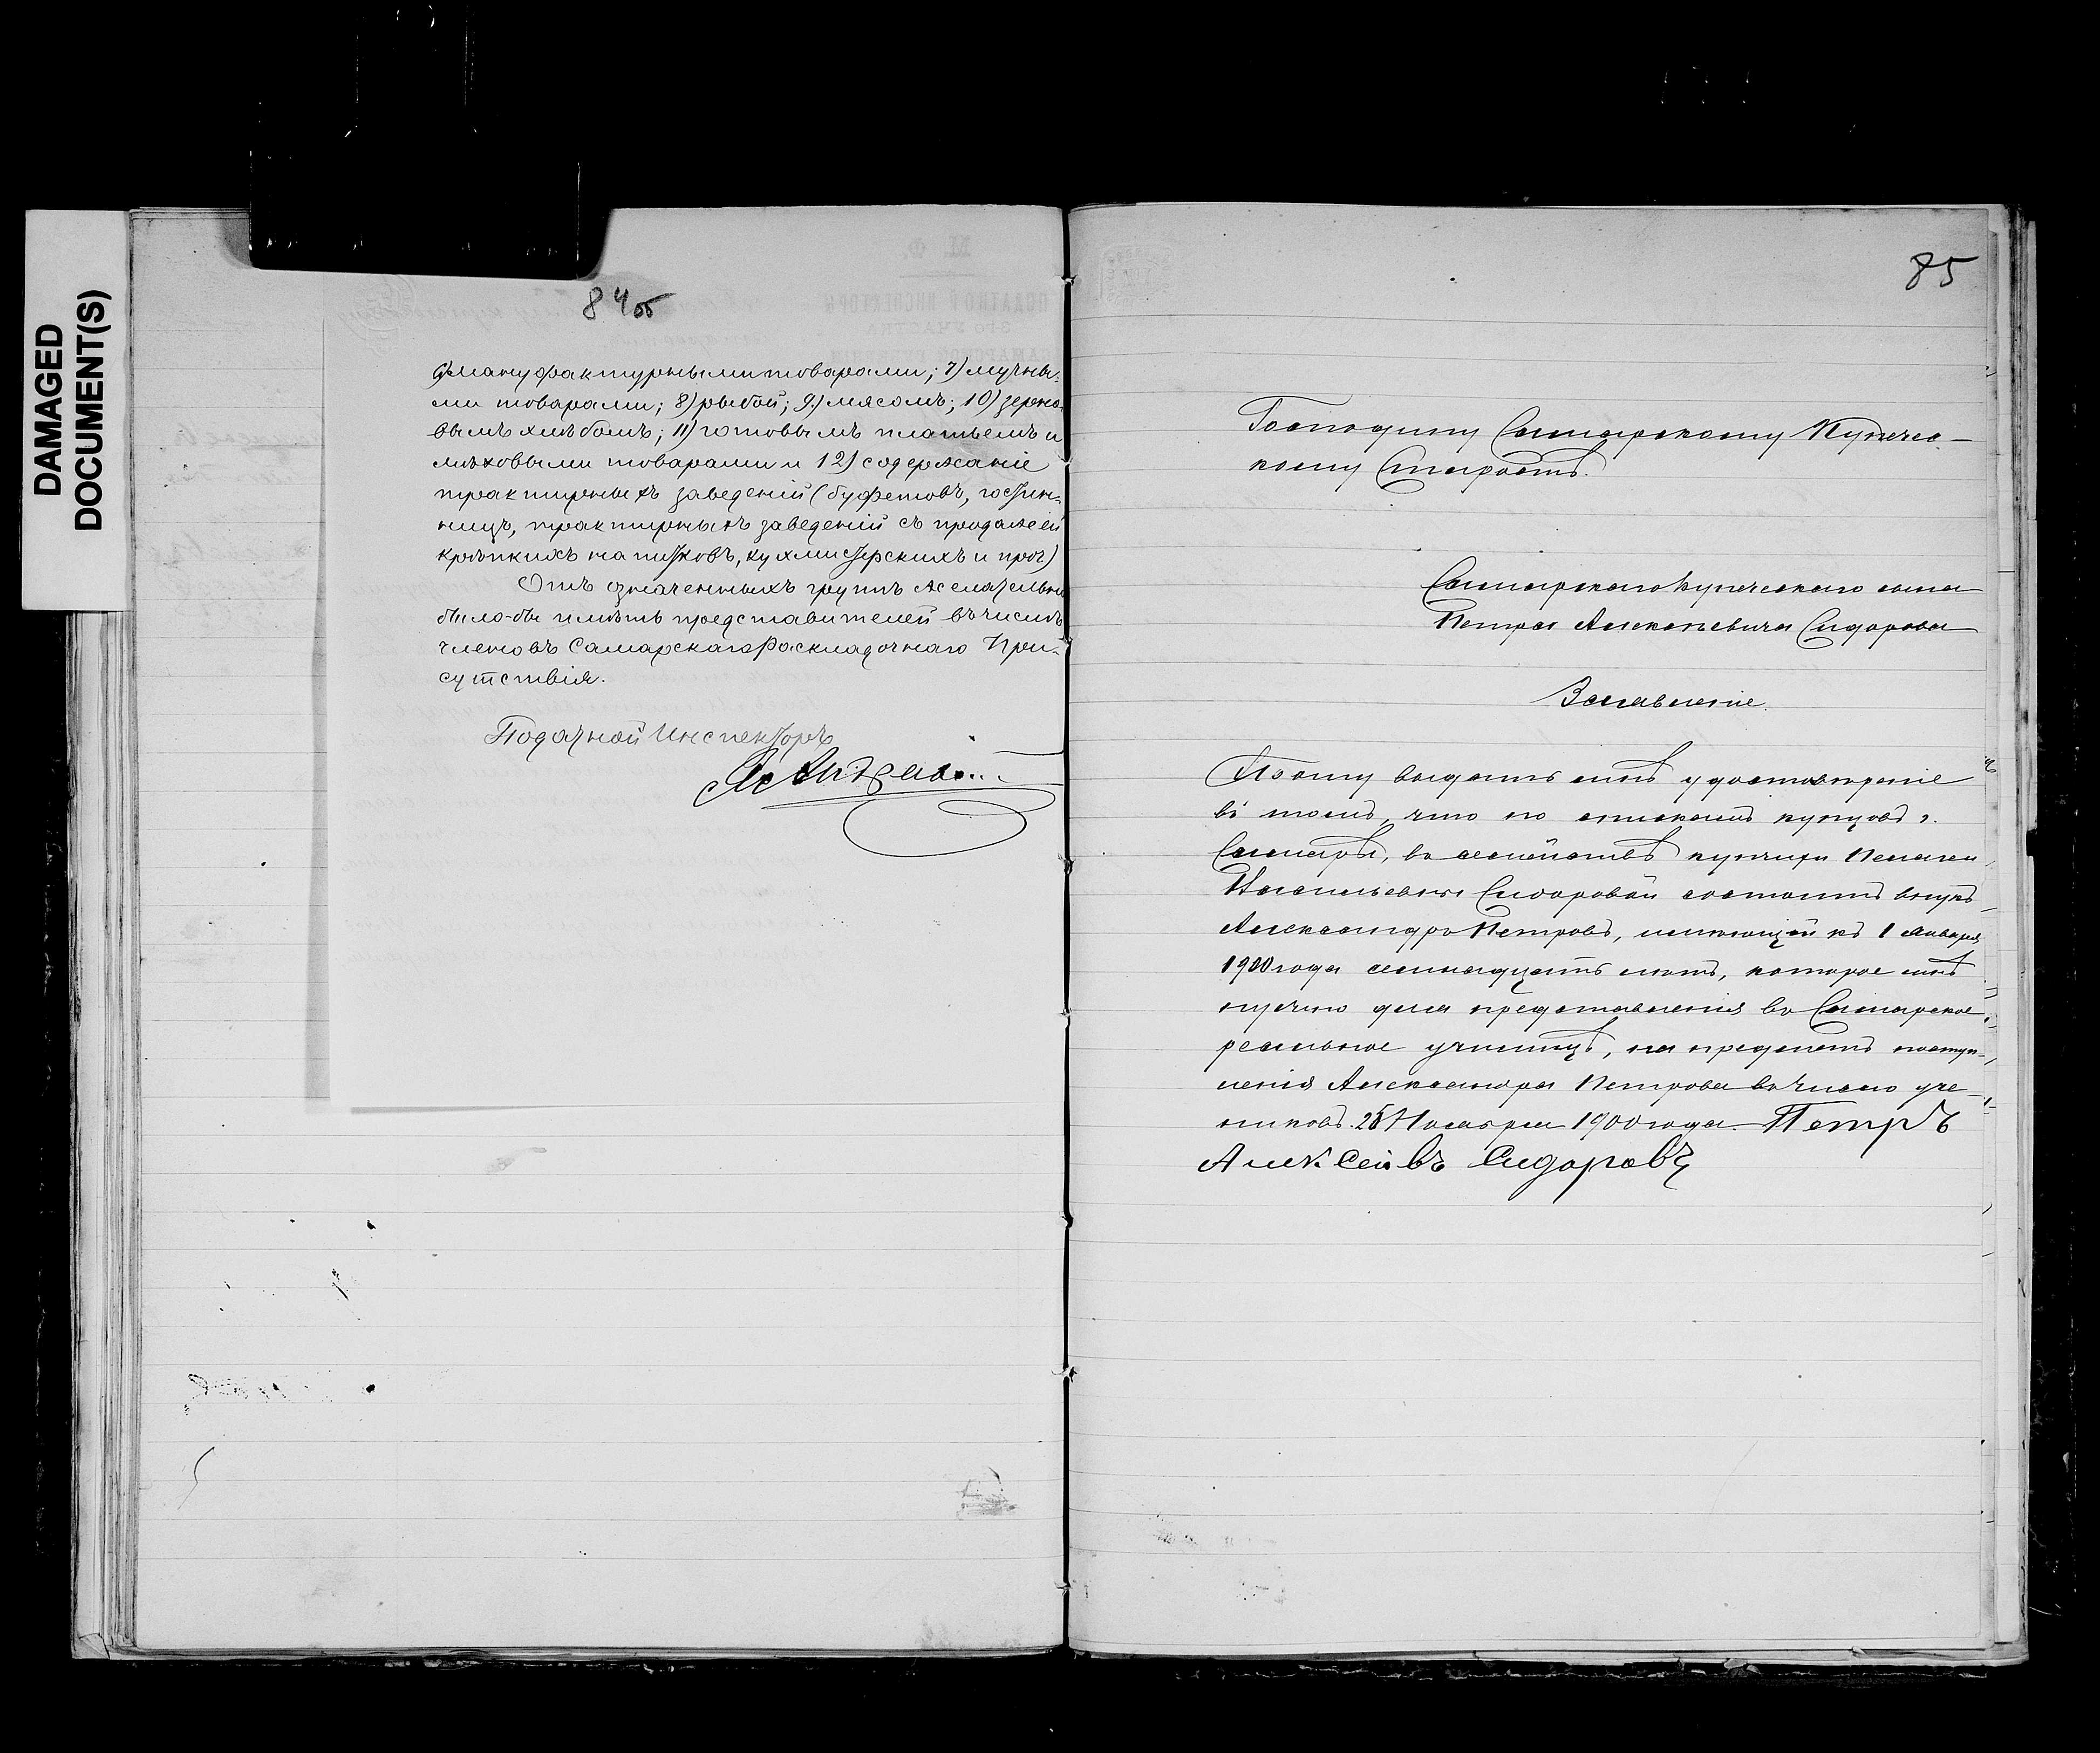 DAMAGED
DOCUMENT(S)
84об
6) мануфактурными товарами; 7) мучны-
ми товарами; 8) рыбой; 9) мясомъ; 10) зерно-
вымъ хлѣбомъ; 11) готовымъ платьемъ и
мѣховыми товарами и 12) содержаніе
трактирныхъ заведеній (буфетовъ, гостин-
ницъ, трактирныхъ заведеній съ продажей
крѣпкихъ напитковъ, кухмистерскихъ и проч)
Отъ означенныхъ группъ желательно
было-бы имѣть представителей въ числѣ
членовъ Самарскаго Раскладочнаго При-
сутствія.
Податной Инспекторъ
85
Господину Самарскому Купечес-
кому Старостѣ.
Самарскаго Купеческаго сына
Петра Алексѣевича Сидорова
Заявленіе.
Прошу выдать мнѣ удостовѣреніе
въ томъ, что по спискамъ купцовъ г.
Самары, въ семействѣ купчихи Пелагеи
Васильевны Сидоровой состоитъ внукъ
Александръ Петровъ, имѣющій къ 1 Января
1900 года семнадцать лѣтъ, которое мнѣ
нужно для представленія въ Самарское
реальное училищѣ, на предметъ поступ-
ленія Александра Петрова въ число уче-
никовъ. 28 Ноября 1900 года. Петръ
Алексеивъ Сидоровъ